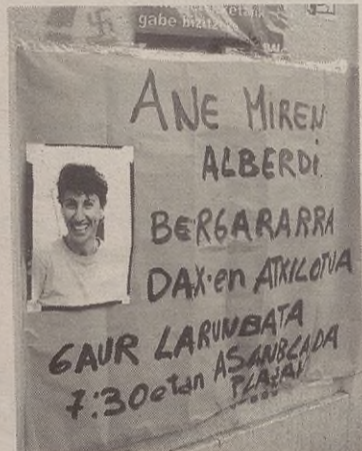 gabe bizitze
ANE MIREN
ALBERDI
BERGARARRA
DAX·en ATXILOTUA
GAUR LARUNBATA
7:30etan ASANBLADA
PLAZAN